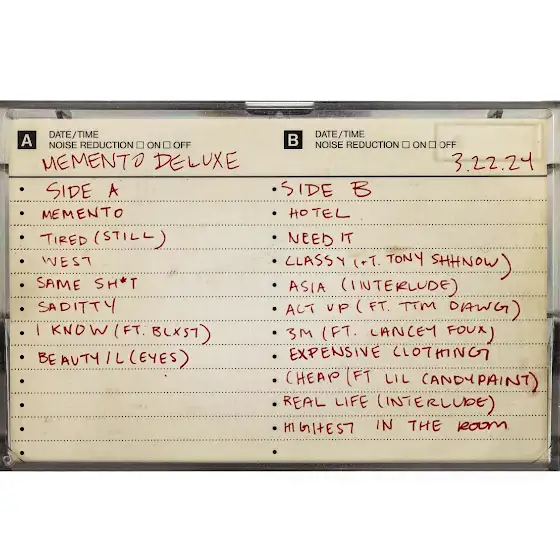 A DATE/TIME
NOISE REDUCTION □ ON □ OFF
MEMENTO DELUXE
SIDE A
MEMENTO
TIRED (STILL)
WEST
SAME SH*T
SADITTY
I KNOW (FT. BLXST)
BEAUTY/L(EYES)
B DATE/TIME
NOISE REDUCTION □ ON □ OFF
3.22.24
SIDE B
HOTEL
NEED IT
CLASSY (FT. TONY SHHNOW)
ASIA (INTERLUDE)
ACT UP (FT. TTM DAWG)
3M (FT. LANCEY FOUX)
EXPENSIVE CLOTHING
CHEAP (FT LIL CANDYPAINT)
REAL LIFE (INTERLUDE)
HIGHEST IN THE ROOM